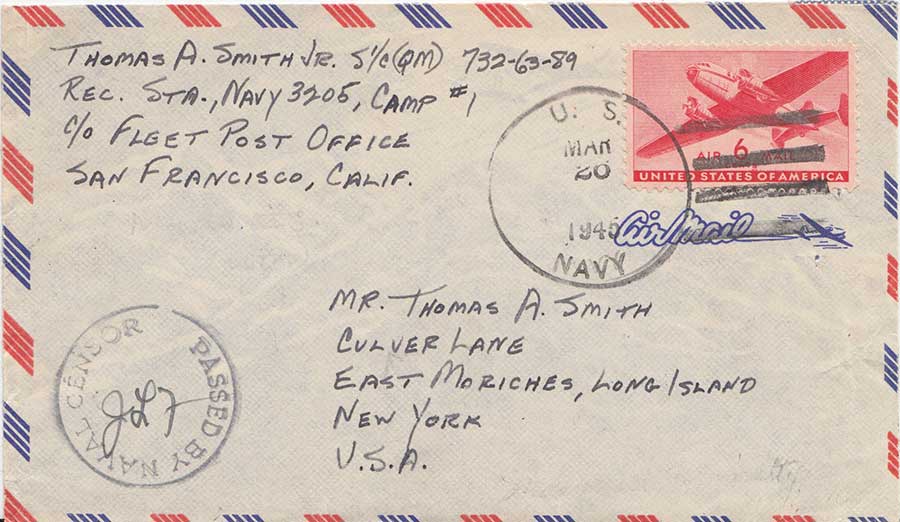 THOMAS A. SMITH JR. S1/c (QM) 732-63-89
REC. STA., NAVY 3205, CAMP #1
c/o FLEET POST OFFICE
SAN FRANCISCO, CALIF.
U. S.
MAR
20
1945
NAVY
AIR 6 MAIL
UNITED STATES OF AMERICA
Air Mail
MR. THOMAS A. SMITH
CULVER LANE
EAST MORICHES, LONG ISLAND
NEW YORK
U.S.A.
PASSED BY NAVAL CENSOR